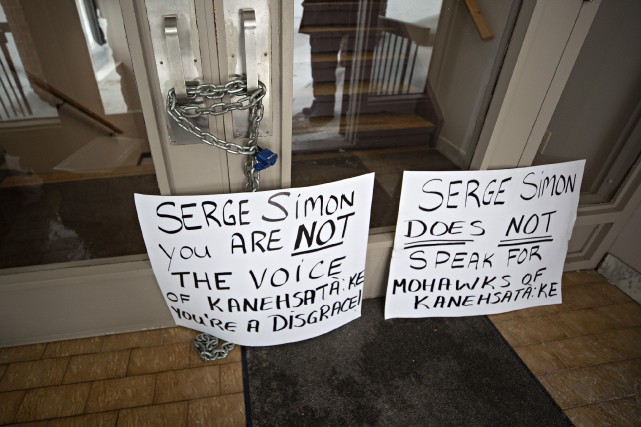 SERGE SIMON
YOU ARE NOT
THE VOICE
OF KANEHSATÀ:KE
YOU'RE A DISGRACE!
SERGE SIMON
DOES NOT
SPEAK FOR
MOHAWKS OF
KANEHSATÀ:KE